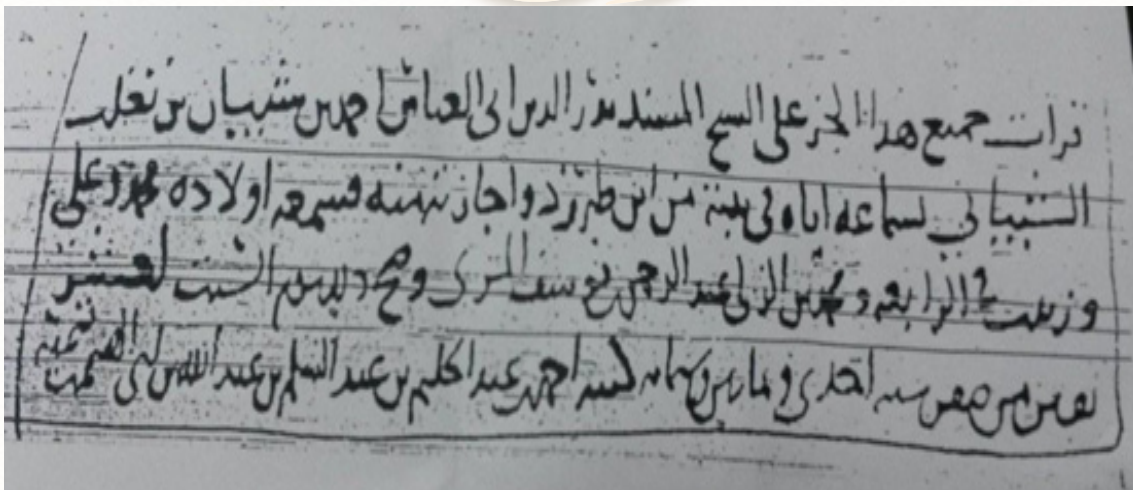 قرات جميع هذا الجز على الشيخ المسند بدر الدين ابي العباس احمد بن شيبان بن تغلب
الشيباني بسماعه اياه في بيته من ابن طبرزد واجازتهنه فسمعه اولاده محمد وعلي
وزينب في الرابعة ومحمد بن الزكي عبد الرحمن بن يوسف المزي وصح ذلك يوم السبت لعشر
بقين من صفر سنه احدى وثمانين وستمايه كتبه احمد بن عبد الحليم بن عبد السلم بن عبد الله بن ابي القسم بن تيمية